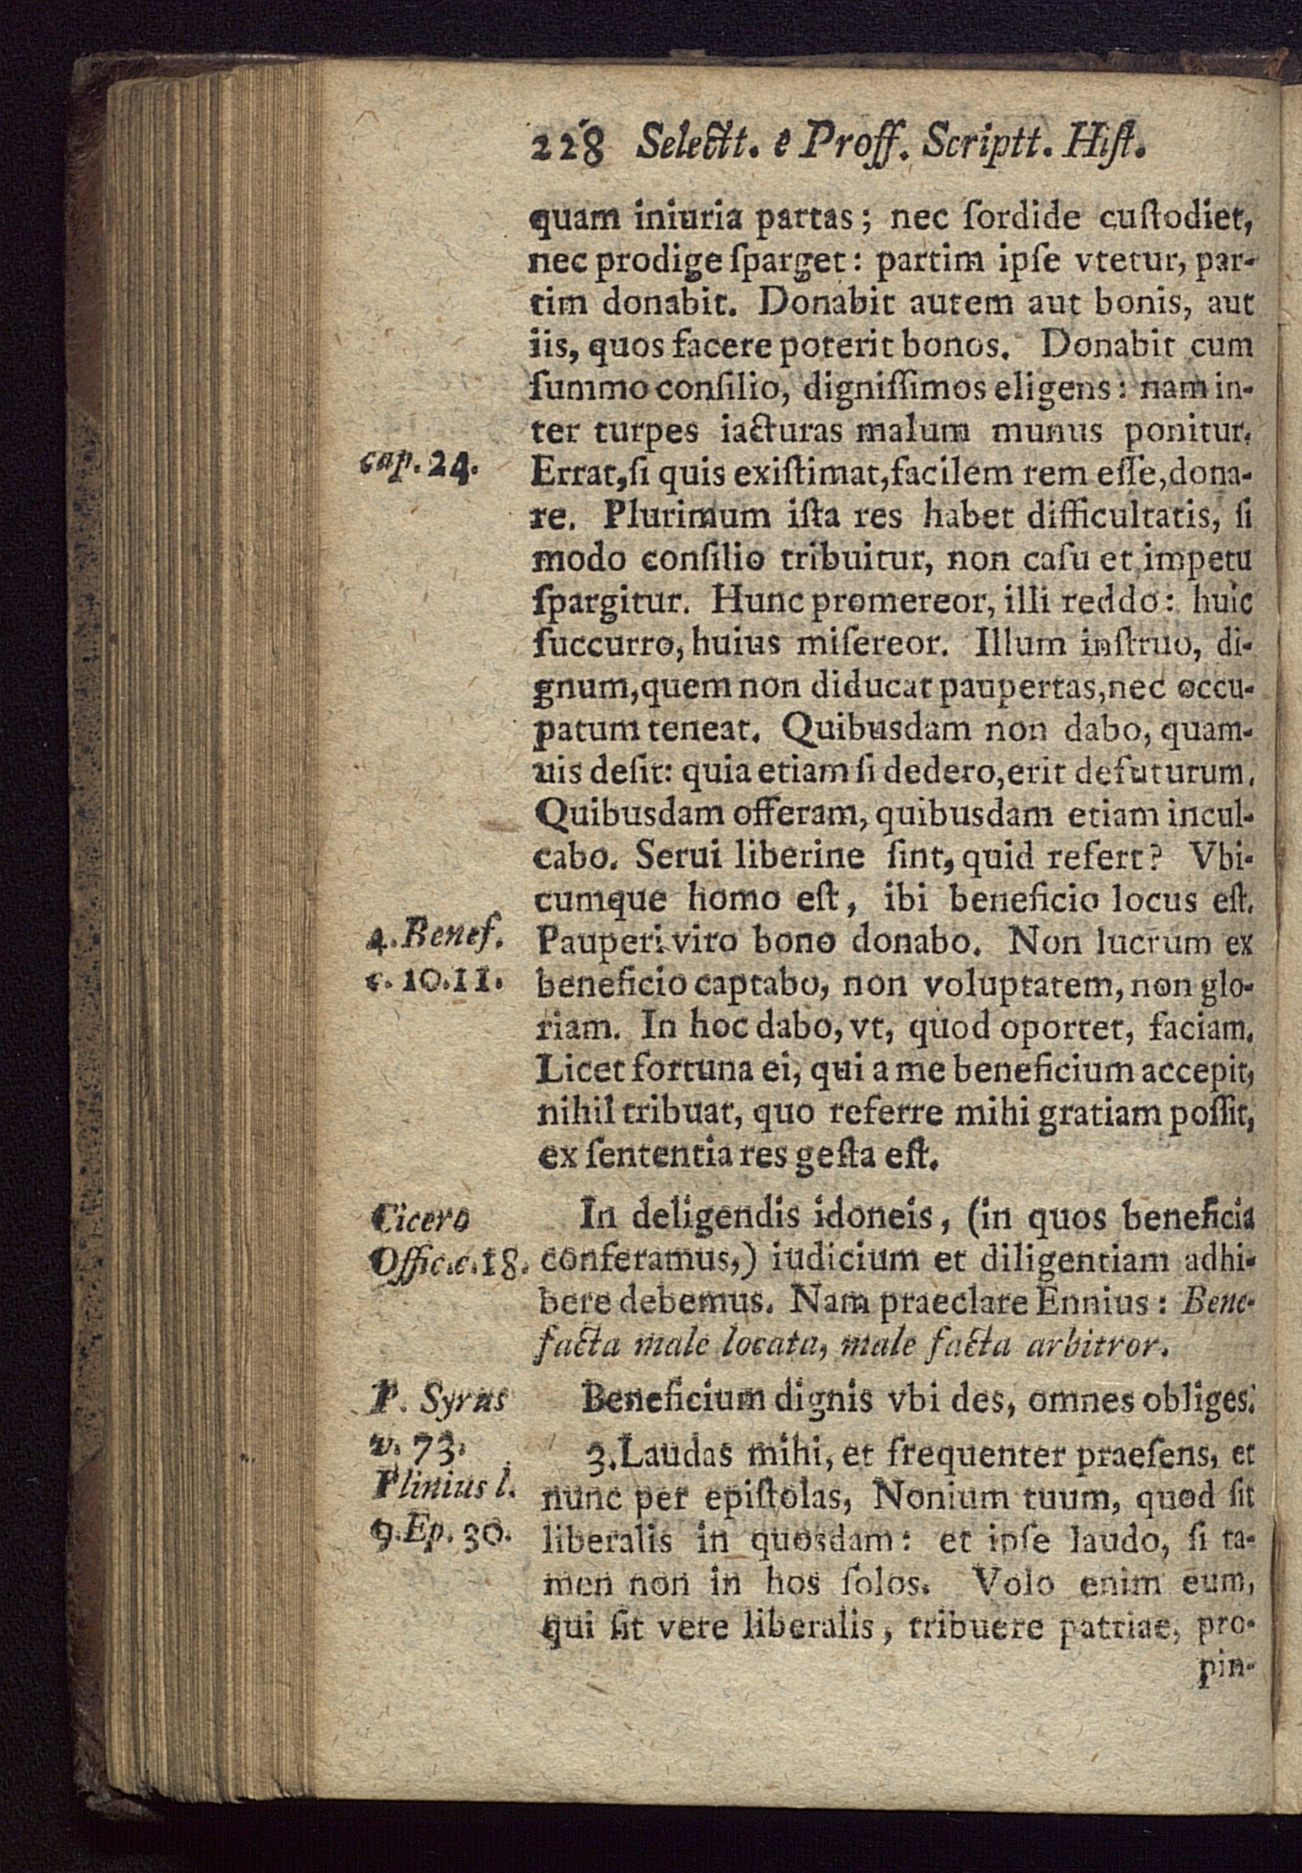 228 Selectt. e Proff. Scriptt. Hiſt.
quam iniuria partas; nec ſordide cuſtodiet,
nec prodige ſparget: partim ipſe vtetur, par-
tim donabit. Donabit autem aut bonis, aut
iis, quos facere poterit bonos. Donabit cum
ſummo conſilio, digniſſimos eligens: nam in-
ter turpes iacturas malum munus ponitur.
cap. 24.
Errat, ſi quis exiſtimat, facilem rem eſſe, dona-
re. Plurimum iſta res habet difficultatis, ſi
modo conſilio tribuitur, non caſu et impetu
ſpargitur. Hunc promereor, illi reddo: huic
ſuccurro, huius miſereor. Illum inſtruo, di-
gnum, quem non diducat paupertas, nec occu-
patum teneat. Quibusdam non dabo, quam-
uis deſit: quia etiam ſi dedero, erit defuturum.
Quibusdam offeram, quibusdam etiam incul-
cabo. Serui liberine ſint, quid refert? Vbi-
cumque homo eſt, ibi beneficio locus eſt.
4. Benef.
c. 10.11.
Pauperi viro bono donabo. Non lucrum ex
beneficio captabo, non voluptatem, non glo-
riam. In hoc dabo, vt, quod oportet, faciam.
Licet fortuna ei, qui a me beneficium accepit,
nihil tribuat, quo referre mihi gratiam poſſit,
ex ſententia res geſta eſt.
Cicero
Offic.c.18.
In deligendis idoneis, (in quos beneficia
conferamus,) iudicium et diligentiam adhi-
bere debemus. Nam praeclare Ennius: Bene-
facta male locata, male facta arbitror.
P. Syrus
v. 73.
Beneficium dignis vbi des, omnes obliges.
Plinius l.
9. Ep. 30.
3. Laudas mihi, et frequenter praeſens, et
nunc per epiſtolas, Nonium tuum, quod ſit
liberalis in quosdam: et ipſe laudo, ſi ta-
men non in hos ſolos. Volo enim eum,
qui ſit vere liberalis, tribuere patriae, pro-
pin-